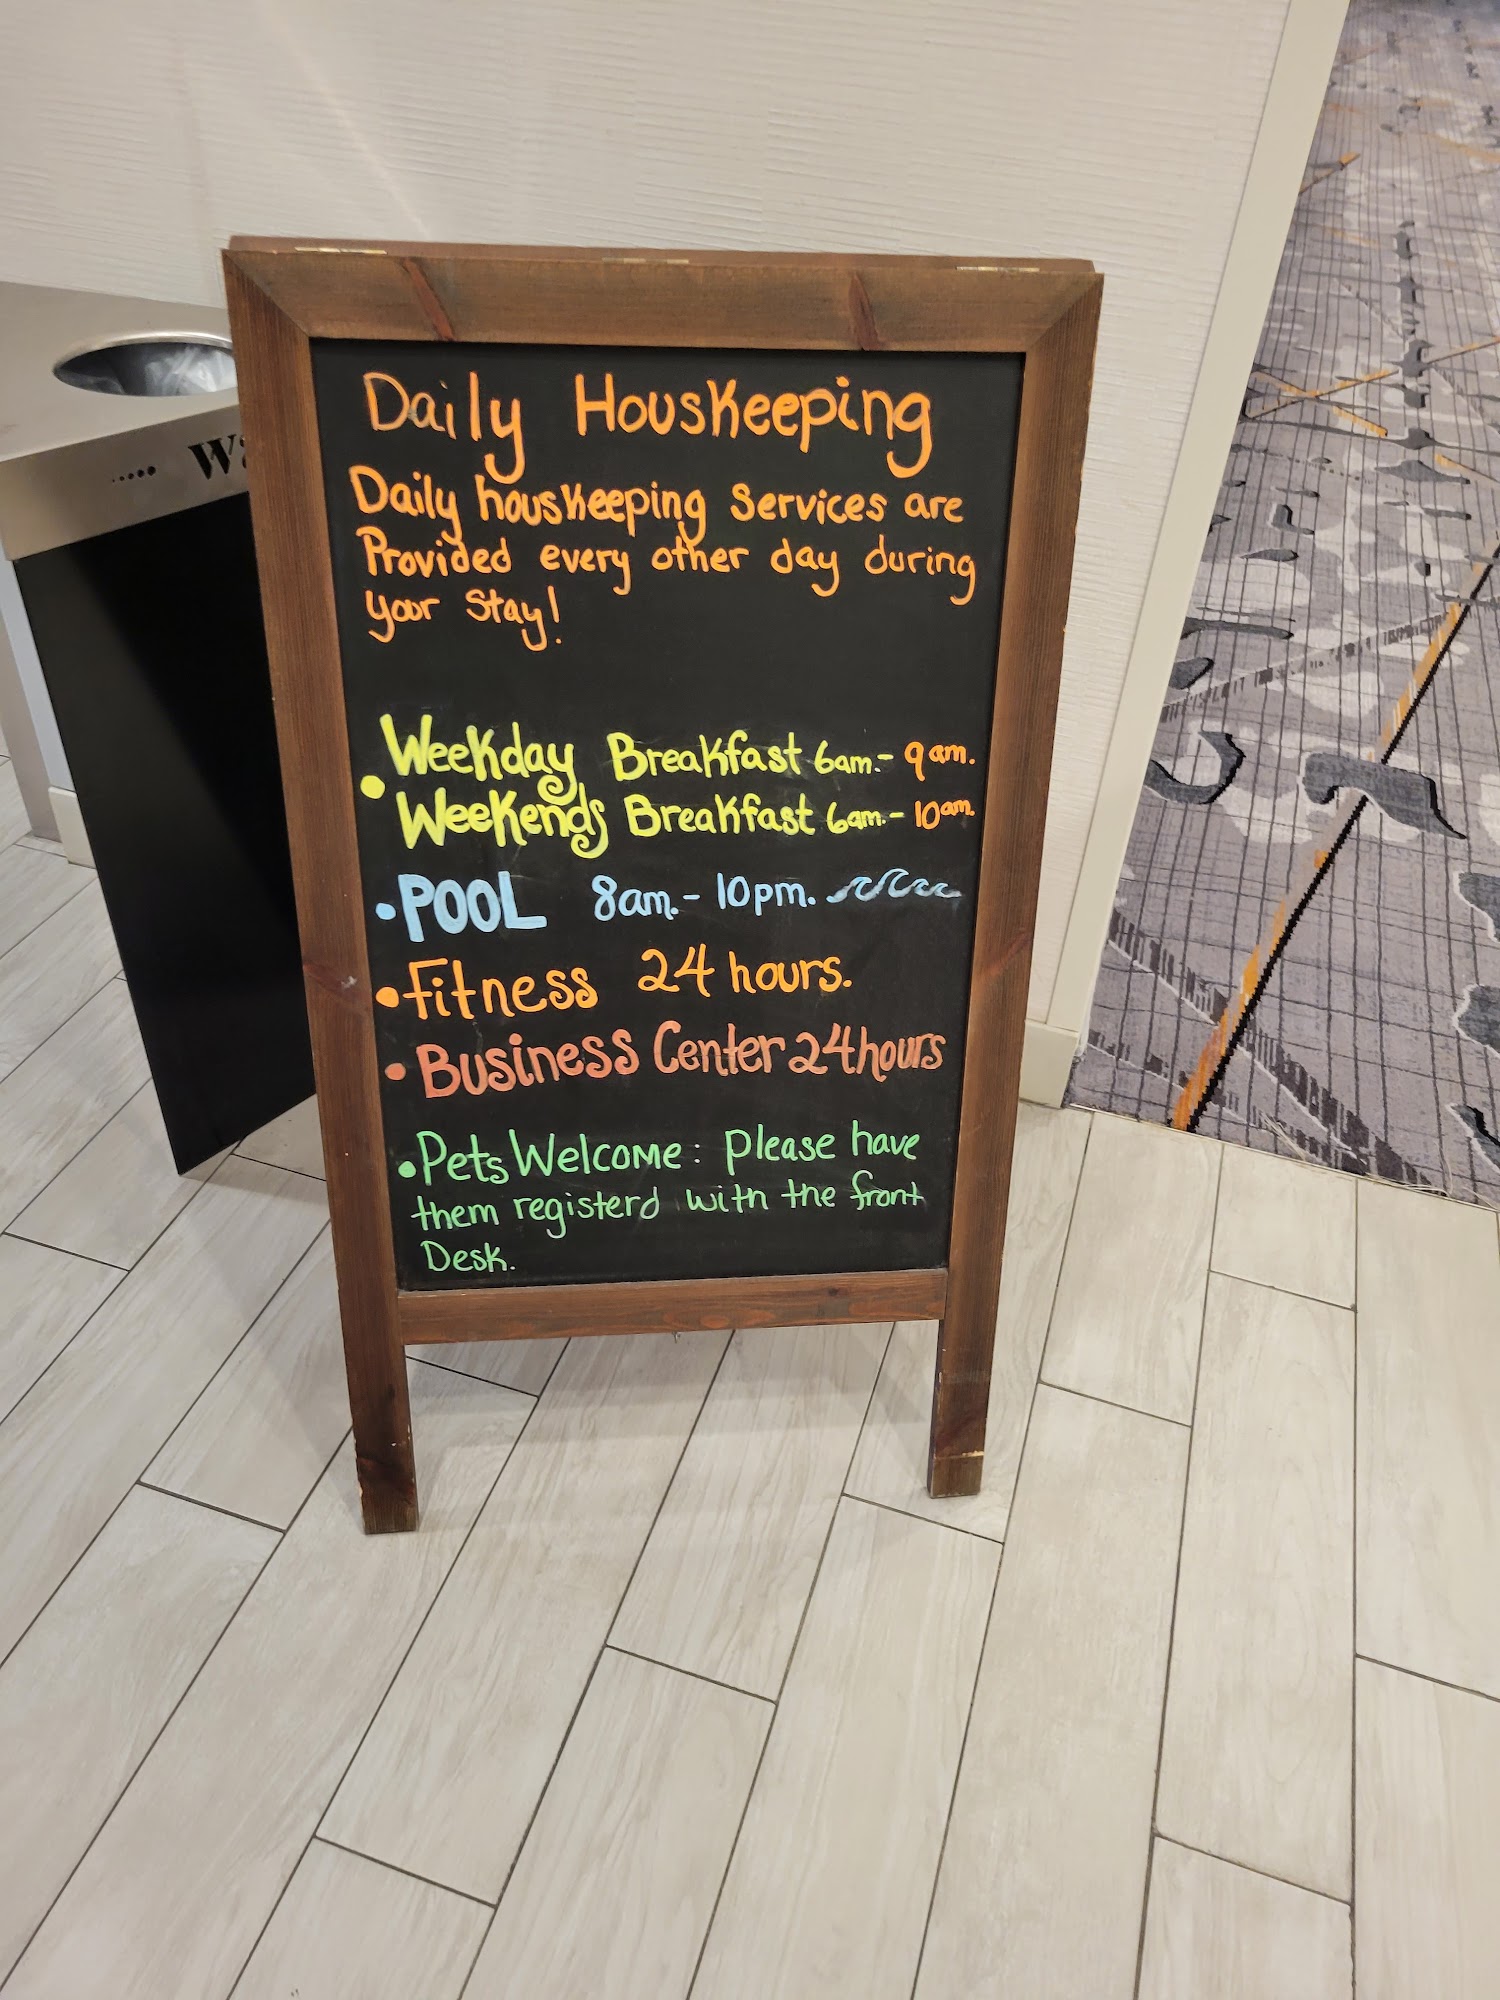 Daily Houskeeping
Daily houskeeping services are
Provided every other day during
your stay!
Weekday Breakfast 6am.- 9am.
Weekends Breakfast 6am.- 10am.
• POOL 8am.- 10pm.
• Fitness 24 hours.
• Business Center 24 hours
• Pets Welcome: please have
them registerd with the front
Desk.